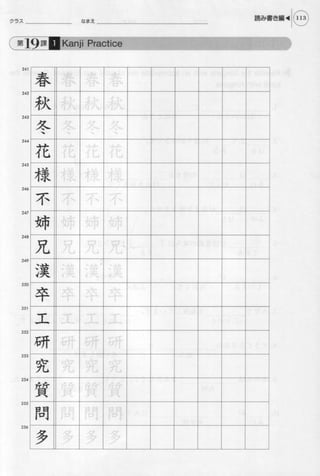 クラス なまえ 読み書き編 113
第19課 1 Kanji Practice
241 春 春 春 春
242 秋 秋 秋 秋
243 冬 冬 冬 冬
244 花 花 花 花
245 様 様 様 様
246 不 不 不 不
247 姉 姉 姉 姉
248 兄 兄 兄 兄
249 漢 漢 漢 漢
250 卒 卒 卒 卒
251 工 工 工 工
252 研 研 研 研
253 究 究 究 究
254 質 質 質 質
255 問 問 問 問
256 多 多 多 多